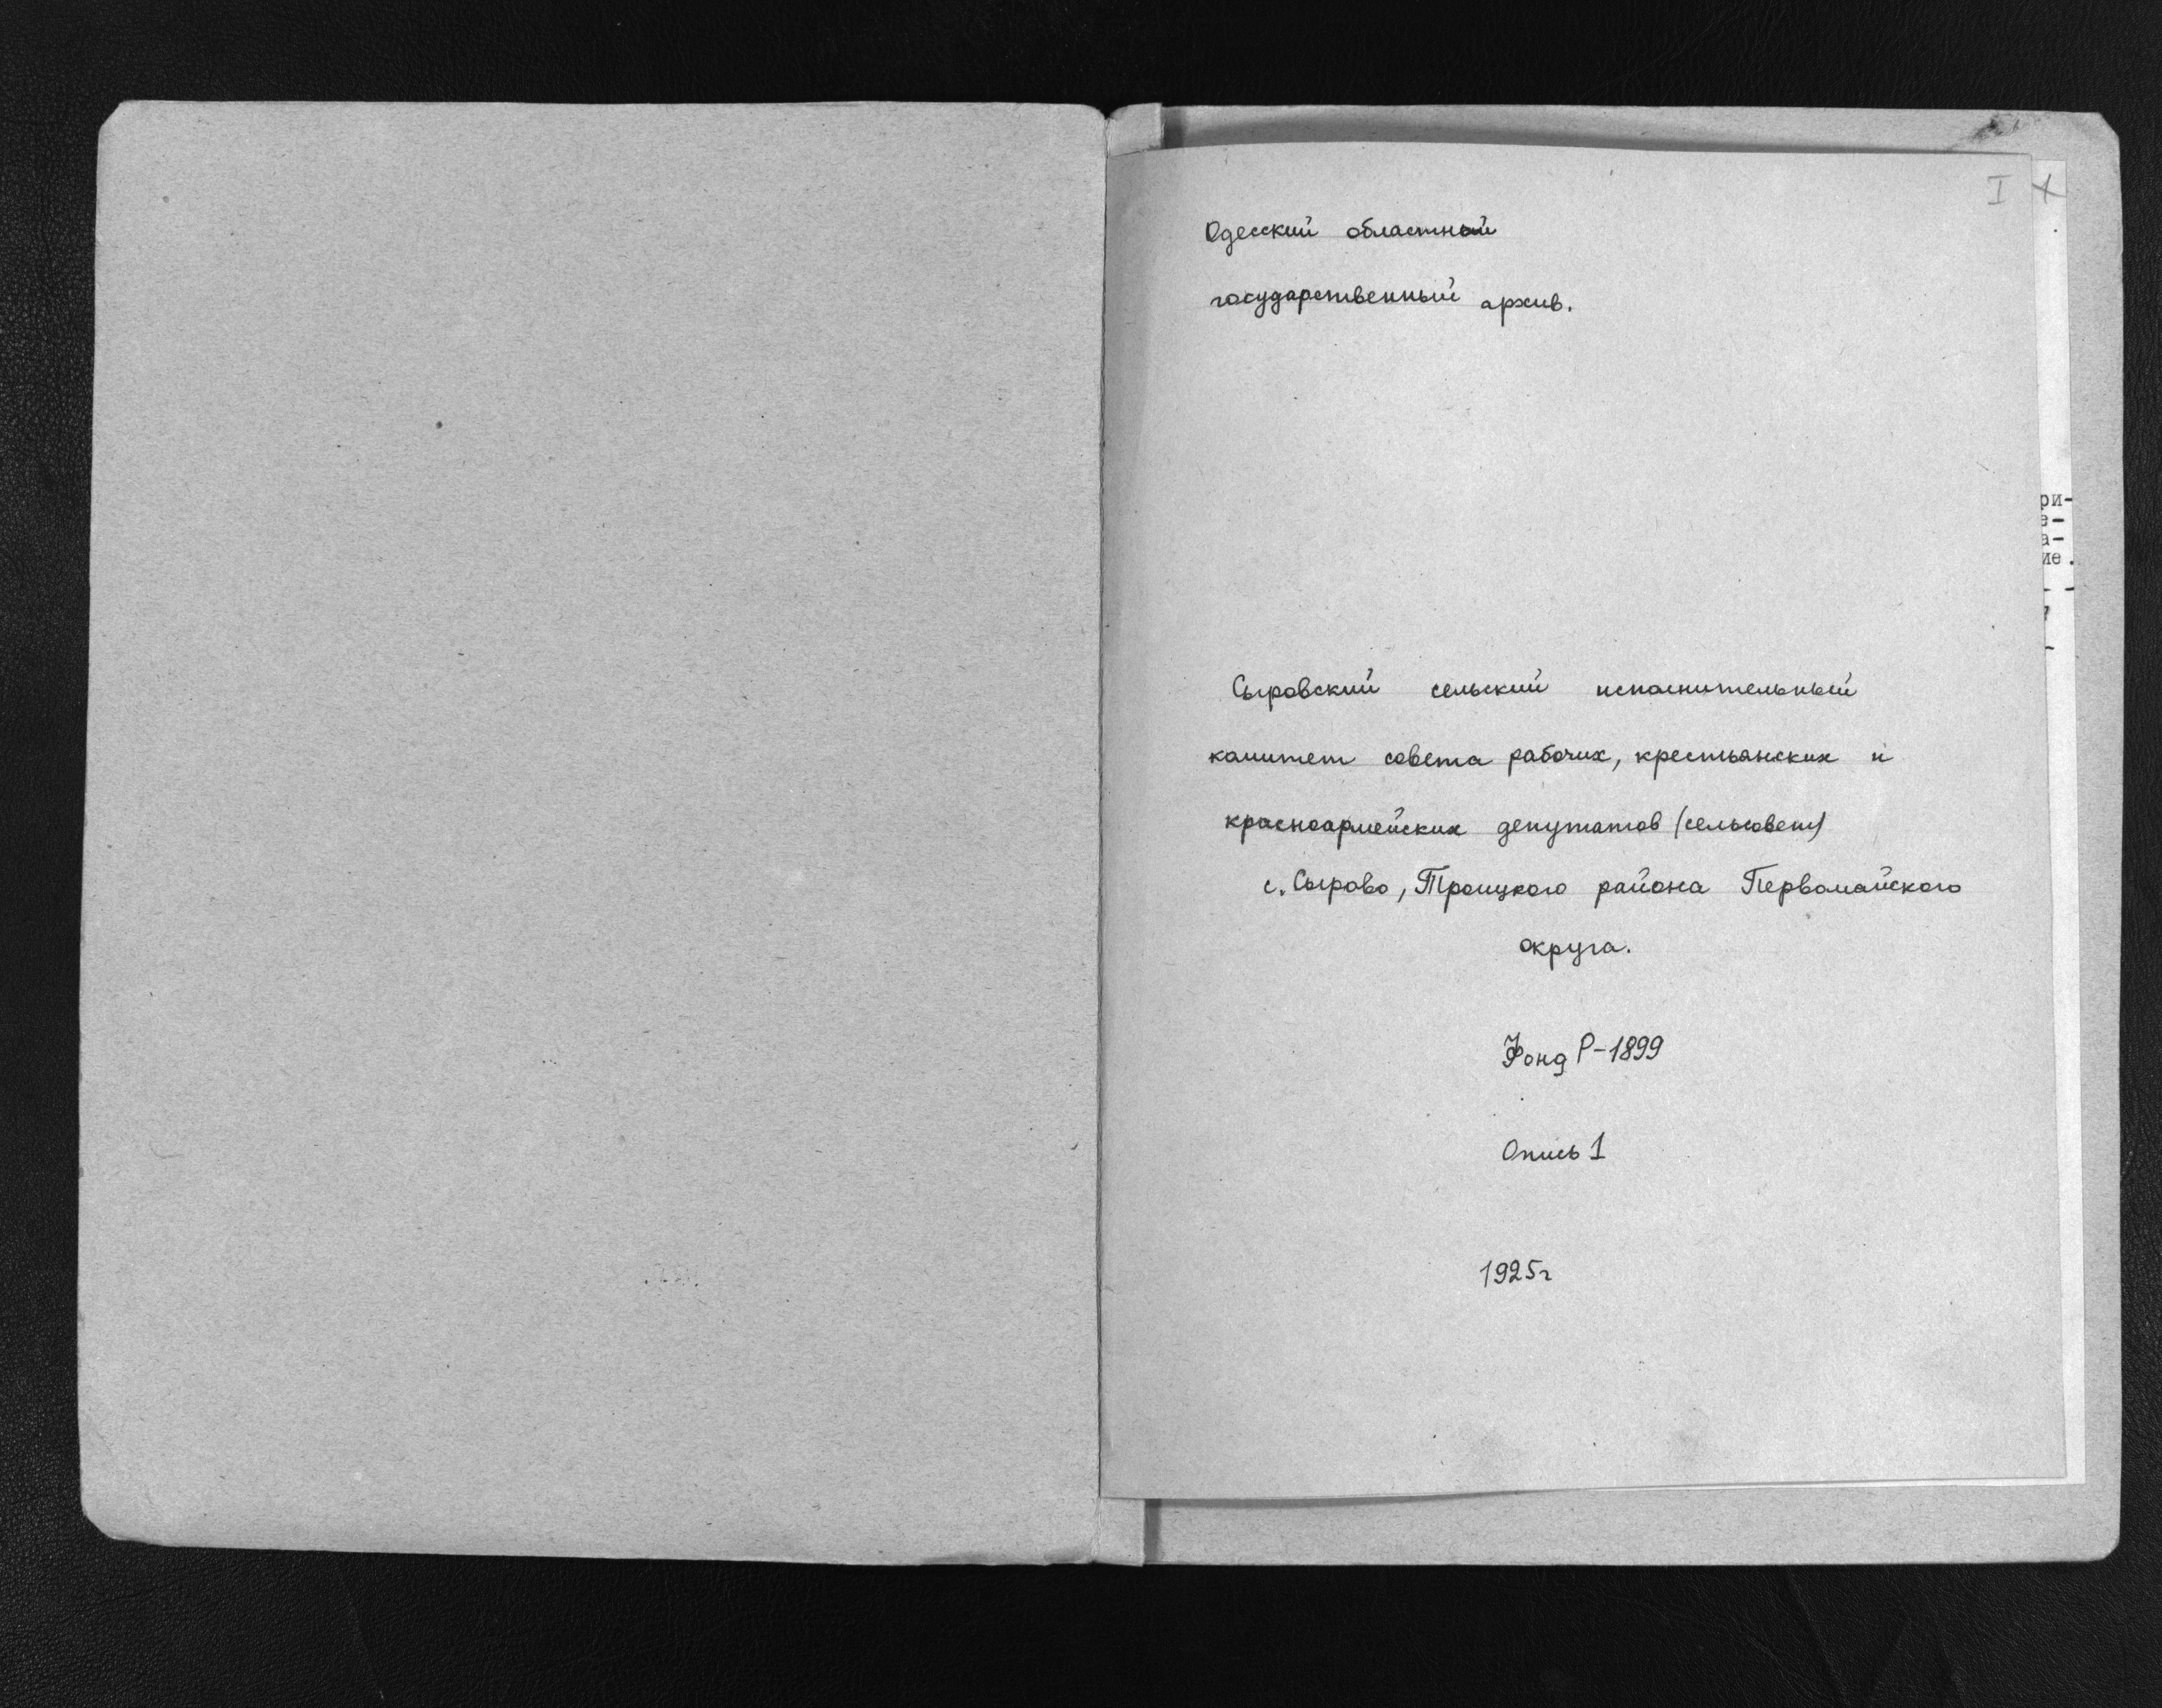 I
Одесский областной
государственный архив.
Сыровский сельский исполнительный
комитет совета рабочих, крестьянских и
красноармейских депутатов (сельсовет)
с. Сырово, Троицкого района Первомайского
округа.
Фонд Р-1899
Опись 1
1925г
ри-
е-
а-
ие.